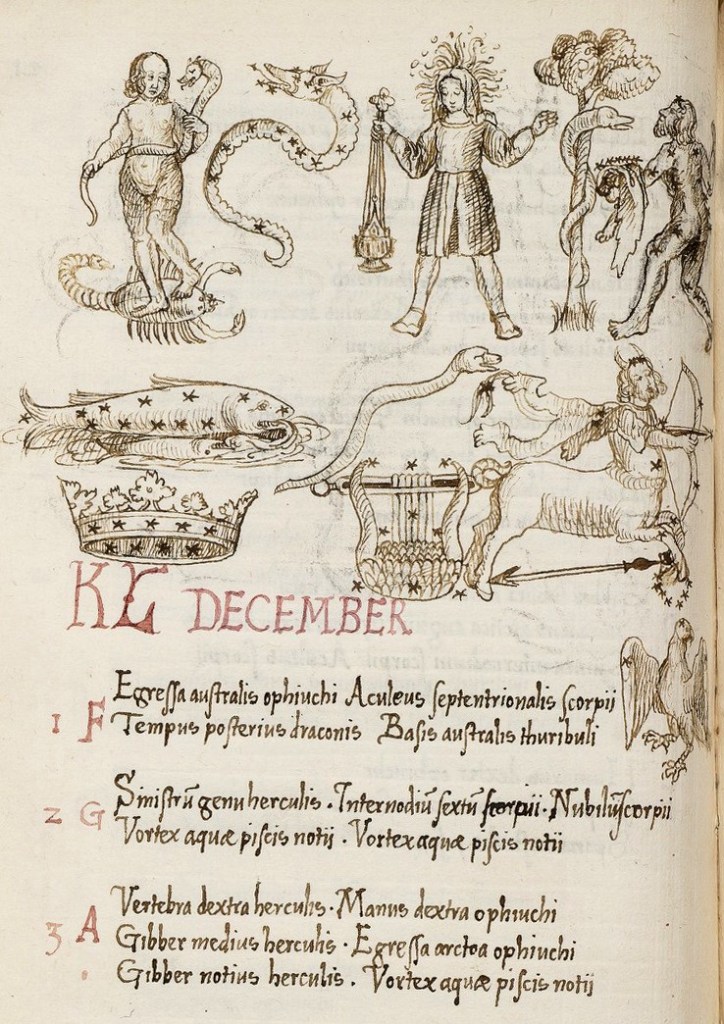 KL DECEMBER
Egressa australis ophiuchi Aculeus septentrionalis scorpii
1 F Tempus posterius draconis Basis australis thuribuli
Sinistrũ genu herculis . Internodiũ sextũ scorpii . Nubiliũ scorpii
2 G Vortex aquæ piscis notii . Vortex aquæ piscis notii
Vertebra dextra herculis . Manus dextra ophiuchi
3 A Gibber medius herculis . Egressa arctoa ophiuchi
Gibber notius herculis . Vortex aquæ piscis notii